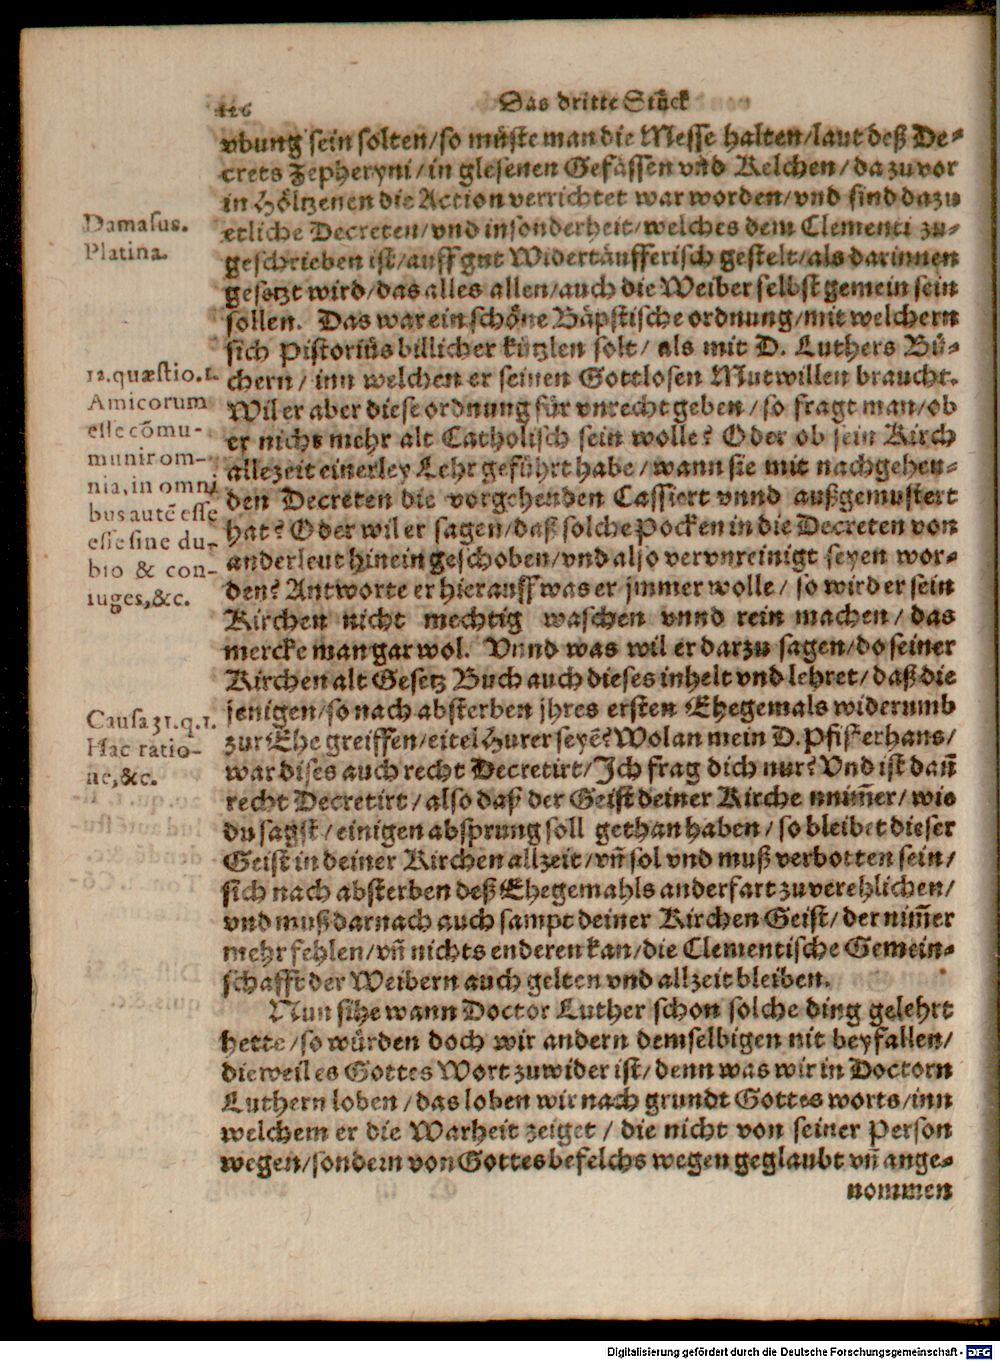 126
Das dritte Stuͤck
vbung sein solten/so muͤste man die Messe halten/laut deß De-
crets Zepheryni/in glesenen Gefaͤssen vnd Kelchen/da zuvor
in Hoͤltzenen die Action verrichtet war worden/vnd sind dazu
etliche Decreten/vnd insonderheit/welches dem Clementi zu-
geschrieben ist/auff gut Widertaͤufferisch gestelt/als darinnen
gesetzt wird/das alles allen/auch die Weiber selbst gemein sein
sollen. Das war ein schoͤne Baͤpstische ordnung/mit welchern
sich Pistorius billicher kuͤtzlen solt/ als mit D. Luthers Buͤ-
chern/ inn welchen er seinen Gottlosen Mutwillen braucht.
Wil er aber diese ordnung fuͤr vnrecht geben/so fragt man/ob
er nichs mehr alt Catholisch sein wolle? Oder ob sein Kirch
allezeit einerley Lehr gefuͤhrt habe/wann sie mit nachgehen-
den Decreten die vorgehenden Cassiert vnnd außgemustert
hat? Oder wil er sagen/daß solche Pocken in die Decreten von
anderleut hinein geschoben/vnd also vervnreinigt seyen wor-
den? Antworte er hierauff was er jmmer wolle/ so wird er sein
Kirchen nicht mechtig waschen vnnd rein machen/das
mercke man gar wol. Vnnd was wil er darzu sagen/do seiner
Kirchen alt Gesetz Buch auch dieses inhelt vnd lehret/daß die
jenigen/so nach absterben jhres ersten Ehegemals widerumb
zur Ehe greiffen/eitel Hurer seyē? Wolan mein D. Pfisterhans/
war dises auch recht Decretirt/Ich frag dich nur? Vnd ist dañ
recht Decretirt/also daß der Geist deiner Kirche nnim̃er/wie
du sagst/einigen absprung soll gethan haben/so bleibet dieser
Geist in deiner Kirchen allzeit/vñ sol vnd muß verbotten sein/
sich nach absterben deß Ehegemahls anderfart zuverehlichen/
vnd muß darnach auch sampt deiner Kirchen Geist/der nim̃er
mehr fehlen/vñ nichts enderen kan/die Clementische Gemein-
schafft der Weibern auch gelten vnd allzeit bleiben.
Nun sihe wann Doctor Luther schon solche ding gelehrt
hette/so wuͤrden doch wir andern demselbigen nit beyfallen/
dieweil es Gottes Wort zuwider ist/denn was wir in Doctorn
Luthern loben/das loben wir nach grundt Gottes worts/inn
welchem er die Warheit zeiget/ die nicht von seiner Person
wegen/sondern von Gottes befelchs wegen geglaubt vñ ange-
nommen
Damasus.
Platina.
12.quæstio.1.
Amicorum
esse cõmu-
munir om-
nia, in omni
bus autē esse
esse sine du-
bio & con-
iuges,&c.
Causa 31.q.1.
Hac ratio-
ne,&c.
Digitalisierung gefördert durch die Deutsche Forschungsgemeinschaft - DFG